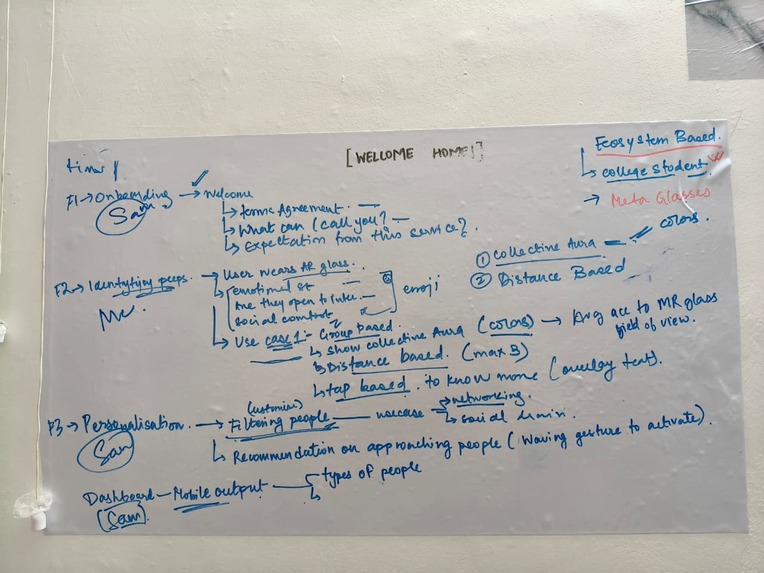 [WELLOME HOME!]
Ecosystem Based.
↳ college student
→ Meta Glasses
F1 → Onboarding → Welcome
Sam
↳ terms Agreement. —
↳ What can (call you? —
↳ Expectation from this service?
① Collective Aura — colors.
② Distance Based
F2 → Identifying peeps. → User wears AR glass.
Me.
emotional st
Are they open to inter. —
social comfort
emoji
↳ Use case 1:- Group based.
↳ show collective Aura (colors) → Avg acc to MR glass field of view.
↳ Distance based. (max 3)
↳ tap based. to know more (overlay text).
F3 → Personalisation. → Filtering people — usecase → networking.
(customize)
↳ social
Sam
↳ Recommendation on approaching people (Waving gesture to activate).
Dashboard — Mobile output — types of people
(Sam).